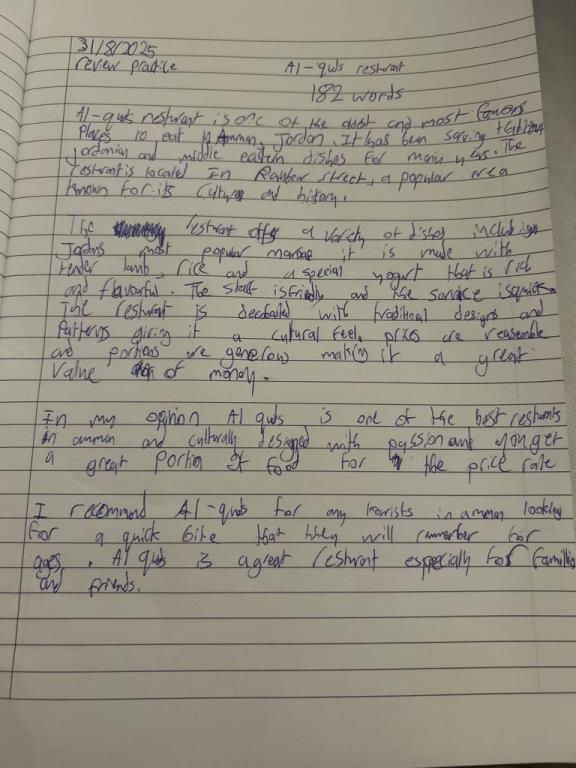 31/8/2025
review practice Al-quds resturant
182 words
Al-quds resturant is one of the oldest and most famous
places to eat in Ammen, Jordan. It has been serving traditional
jordanian and middle eastern dishes for many years. The
resturant is located In Rainbow street, a popular area
known for its culture and history.
The resturant offers a variety of dishes including
Jordans most popular mansaf it is made with
tender lamb, rice and a special yogurt that is rich
and flavourful. The staff is friendly and the service is quick.
The resturant is decorated with traditional designs and
Patterns giving it a cultural feel, prices are reasonable
and portions are generous making it a great
value of money.
In my opinion Al quds is one of the best resturants
in amman and culturally designed with passion and you get
a great portion of food for the price rate
I recommend Al-quds for any tourists in amman looking
for a quick bite that they will remember for
ages. Al quds is a great resturant especially for families
and friends.